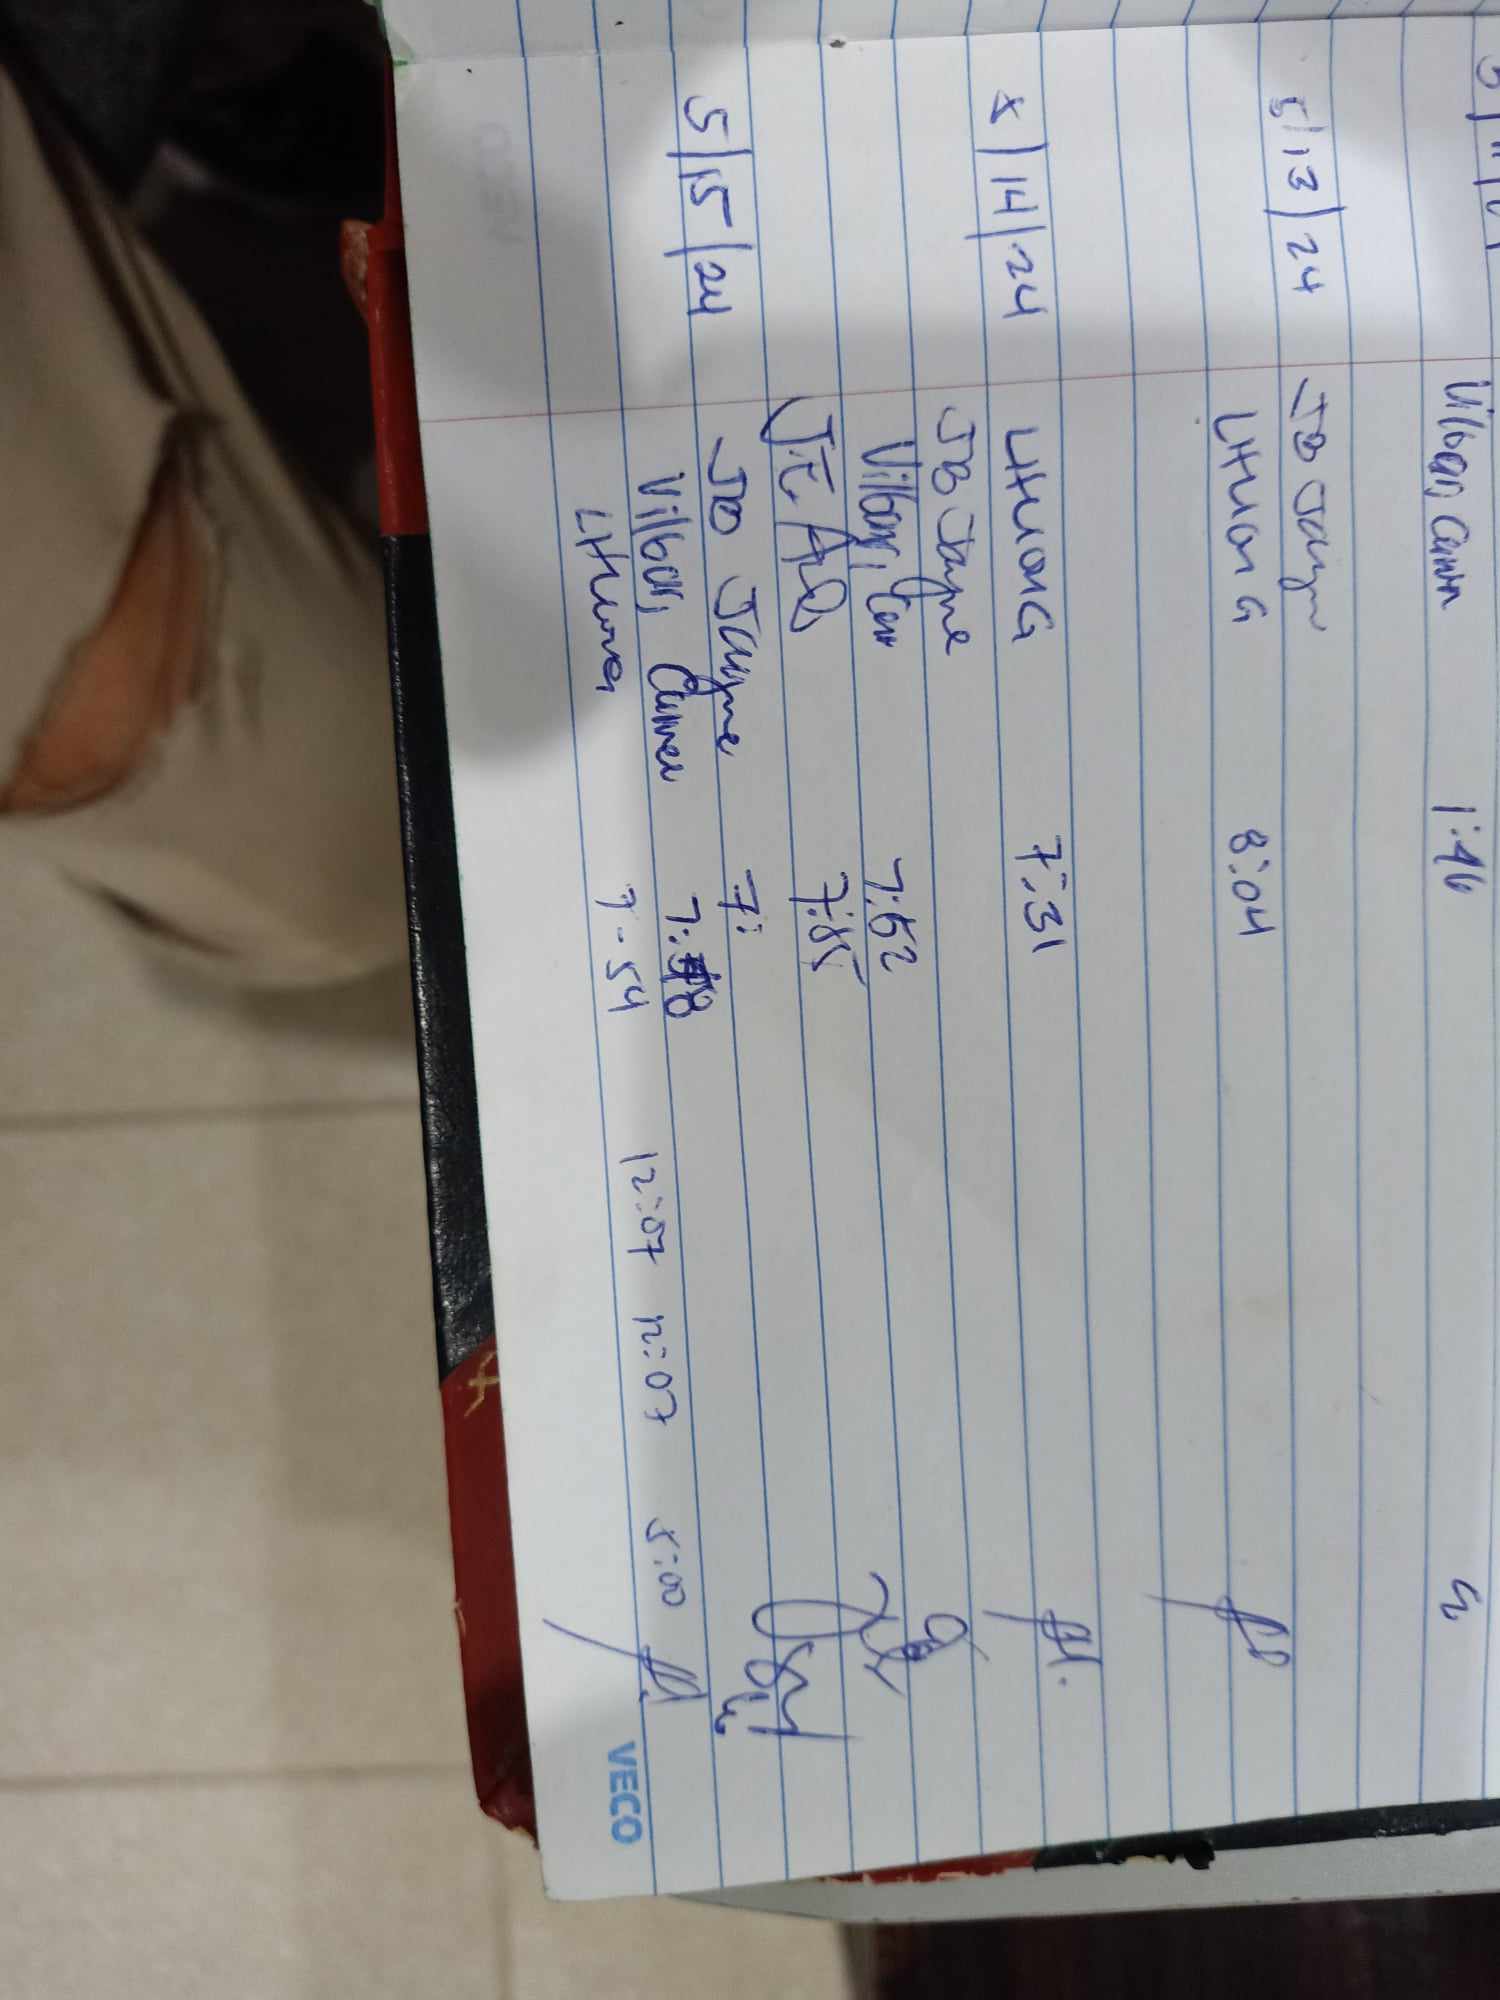 Vilbar, Carmen 1:46
5/13/24 JB Jayne
LHUONG 8:04
5/14/24 LHUONG 7:31
JB Jayne
Vilbar, 7:52
7:55
5/15/24 JB Jayne 7:
Vilbar, Carmen 7:48
LHuong 7-54 12:07 12:07 5:00
VECO